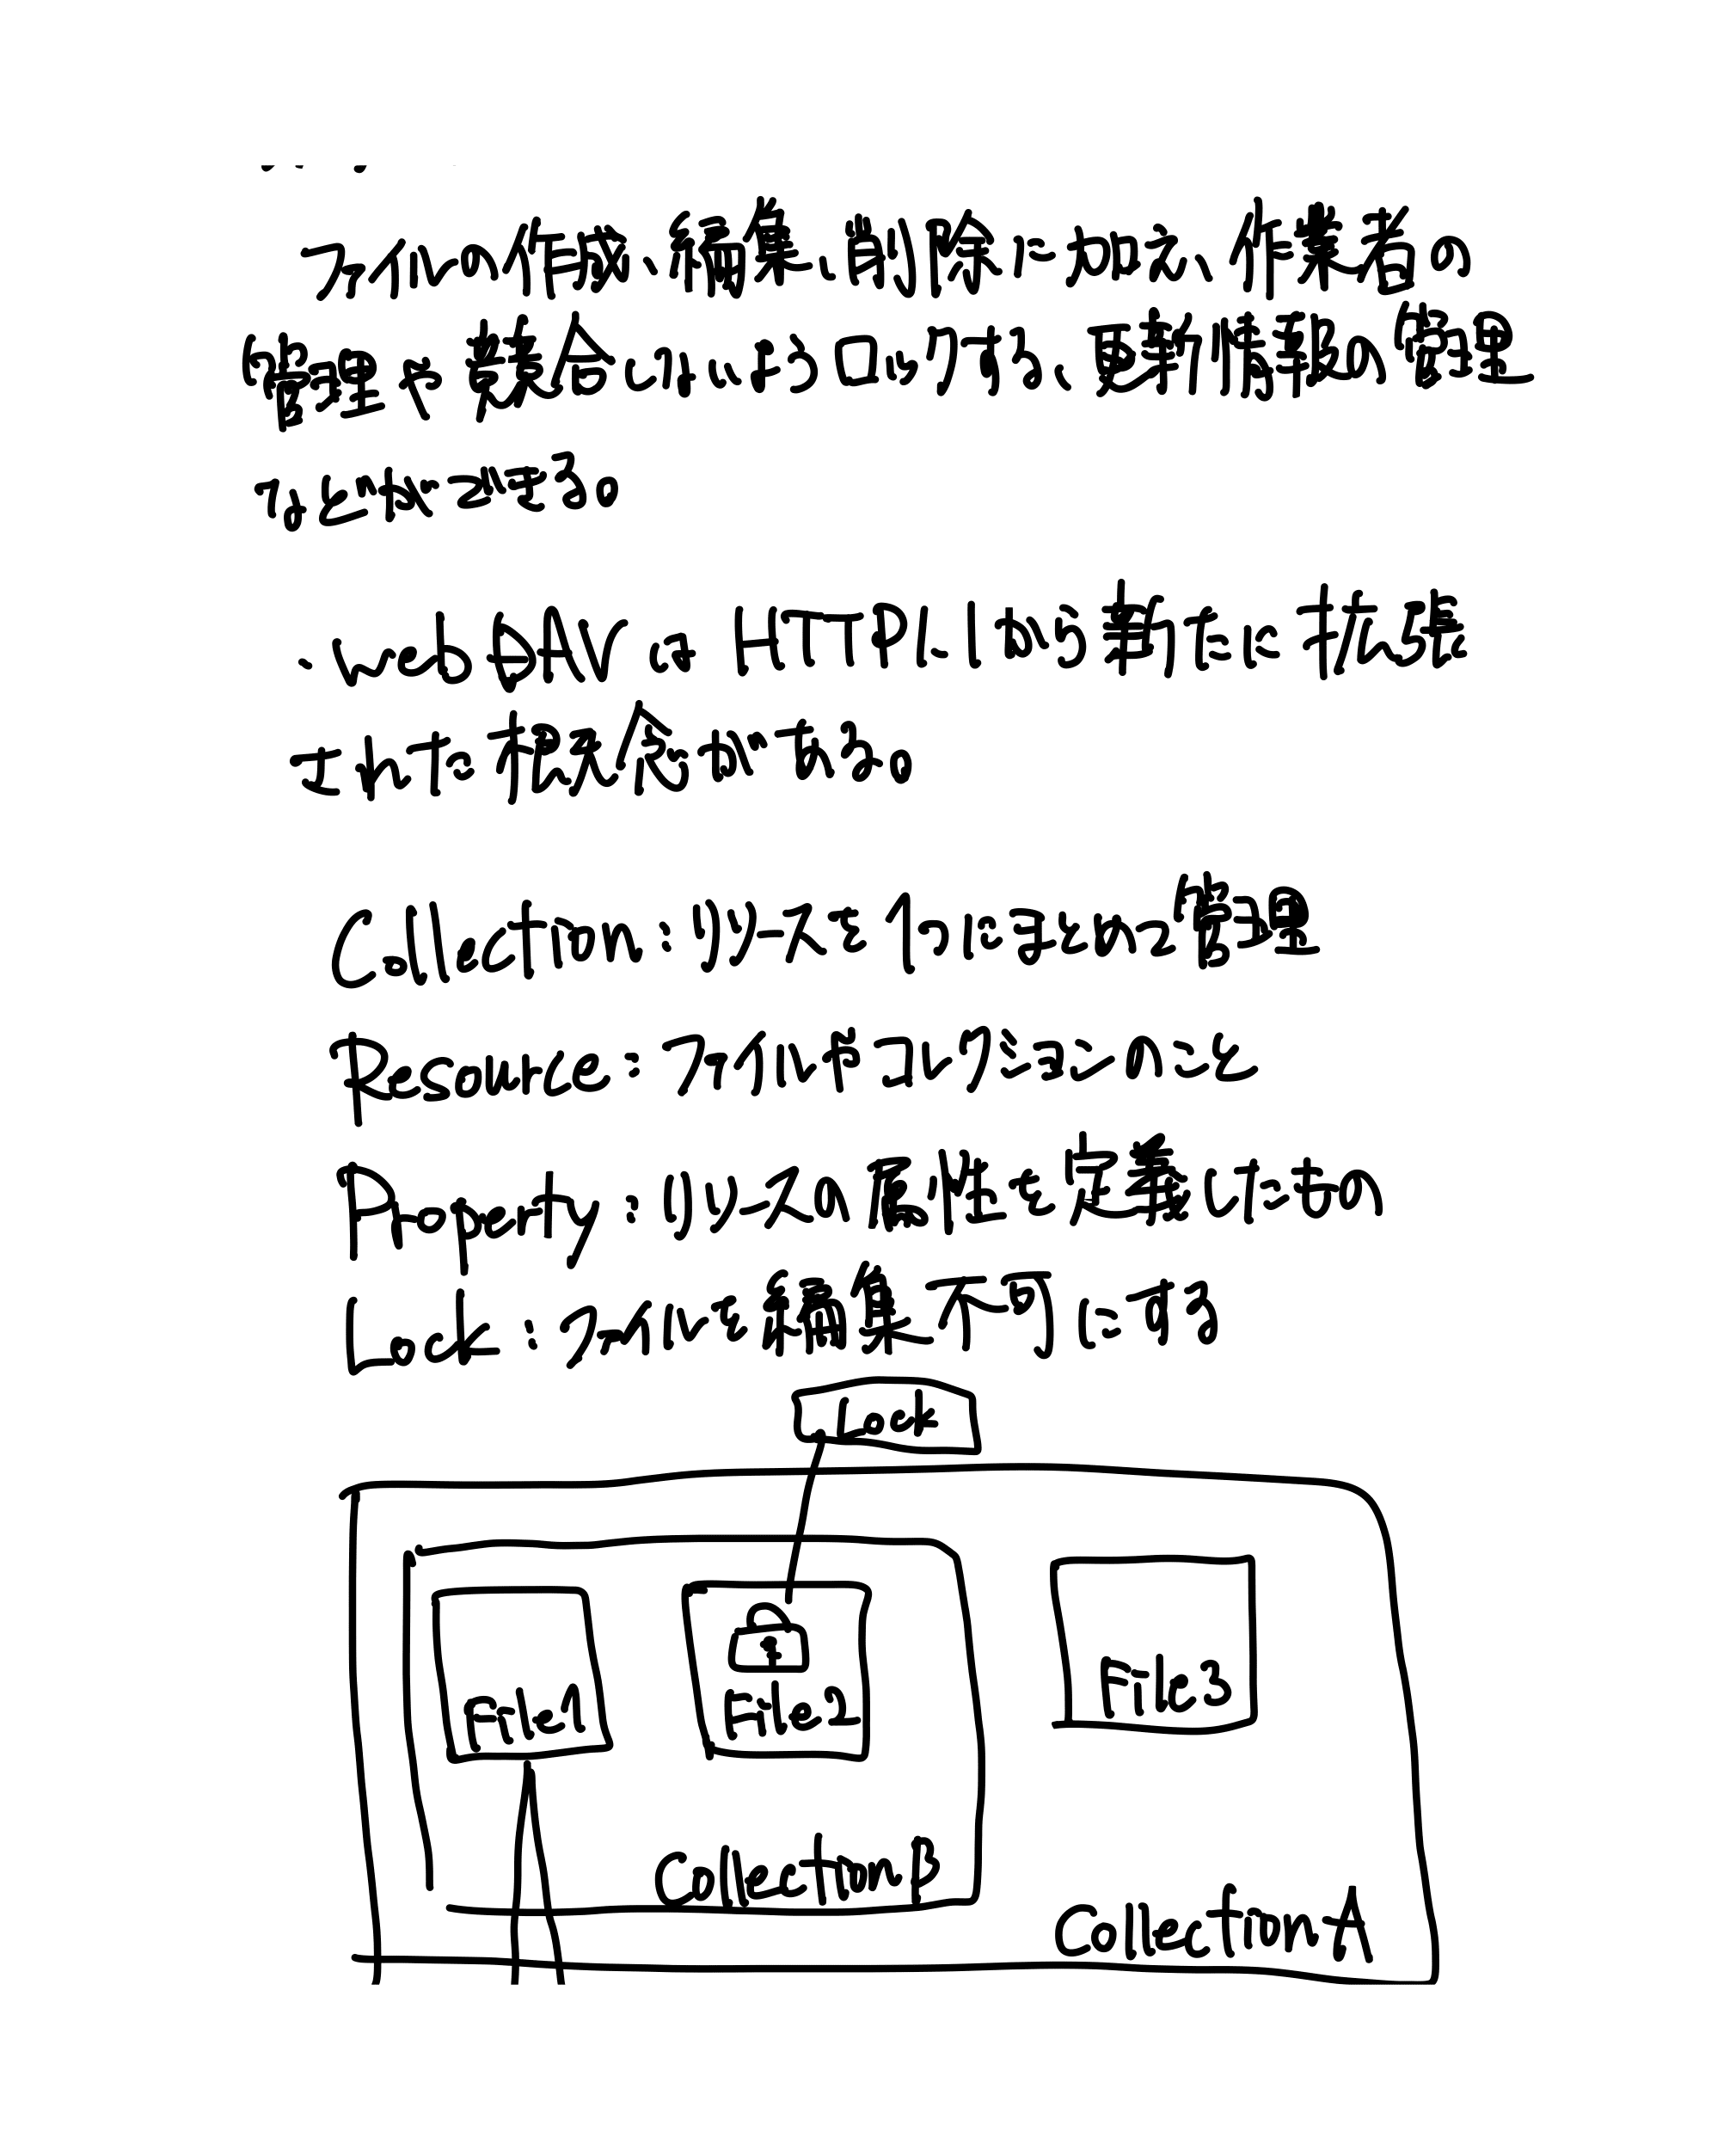 ファイルの作成、編集、削除に加え、作業者の
管理や競合しないようロックする、更新情報の管理
などができる。
・WebDAVはHTTP1.1から新たに拡張
された概念がある。
Collection：リソースを1つにまとめて管理
Resource：ファイルやコレクションのこと
Property：リソースの属性を定義したもの
Lock：ファイルを編集不可にする
Lock
File1
File2
File3
CollectionB
CollectionA